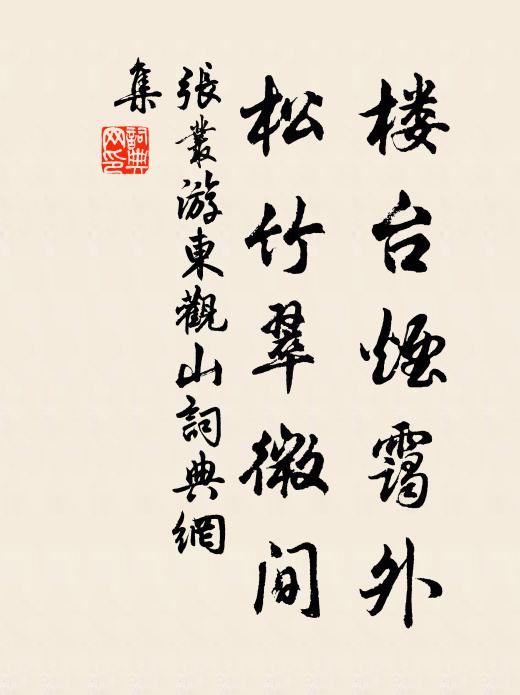 楼台煙霭外
松竹翠微间
張叢游東觀山詞典網
集
詞典
网印